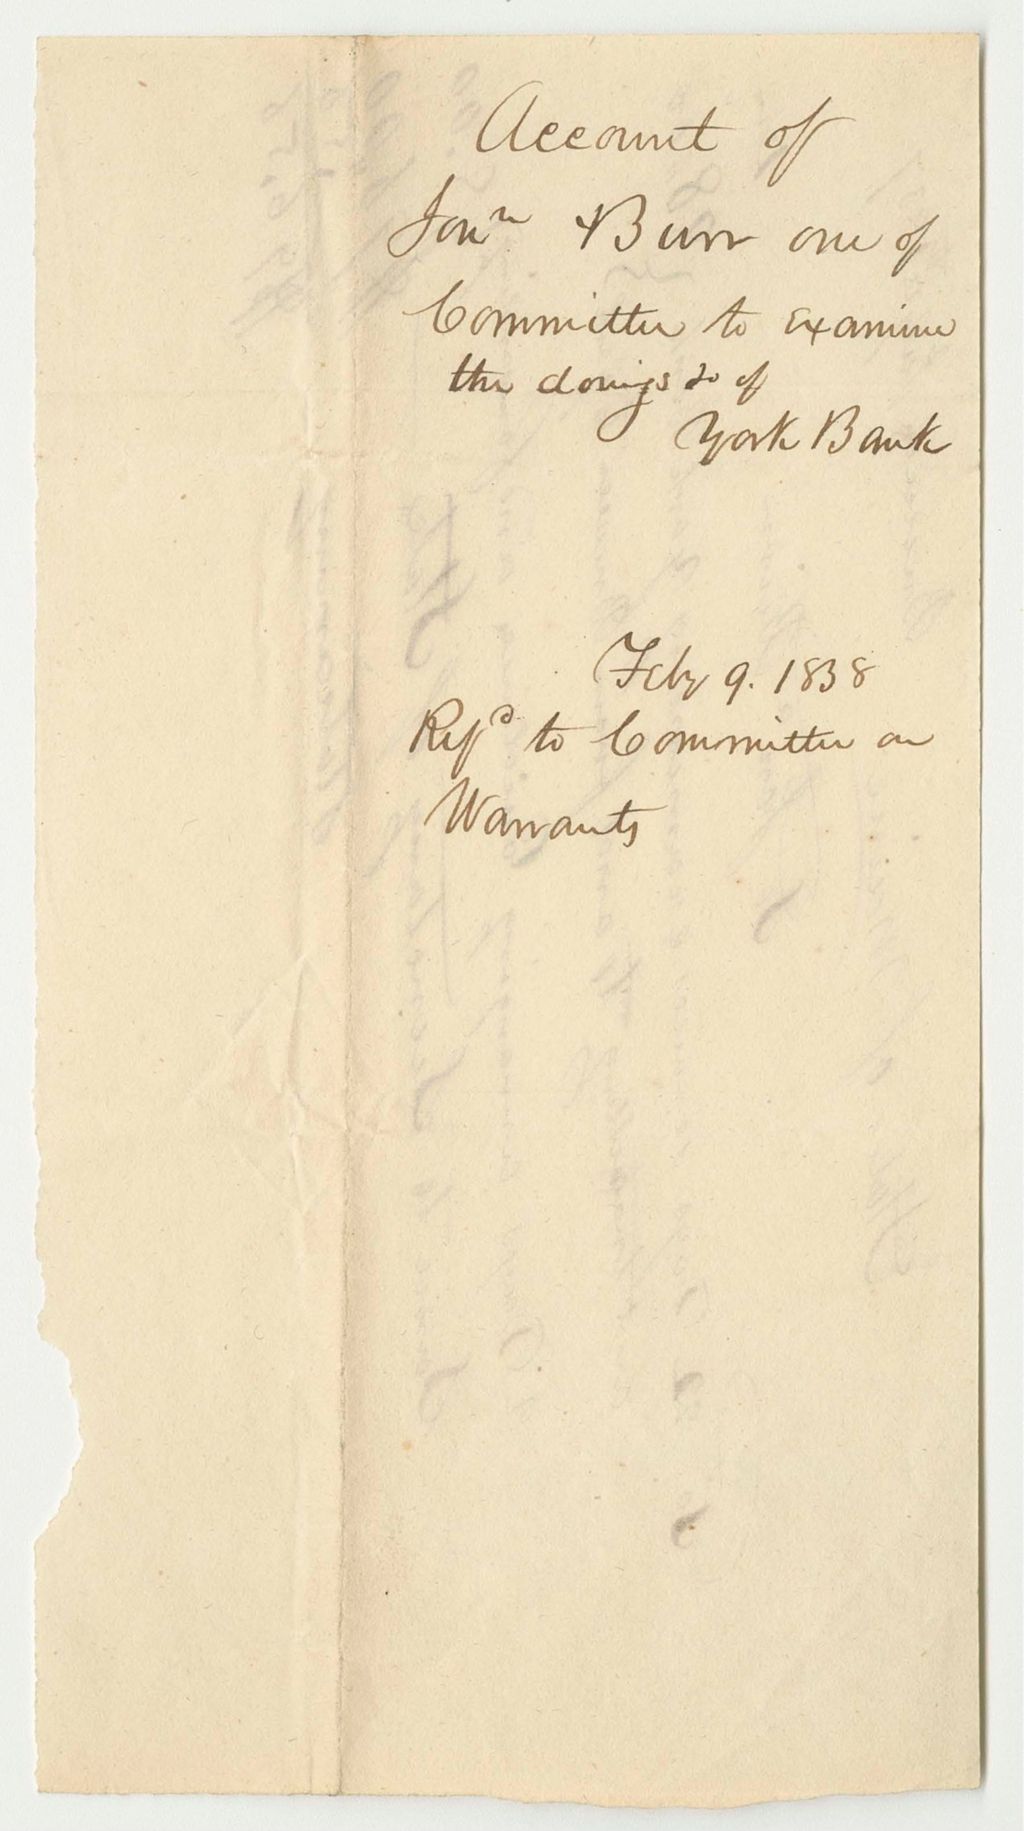 Account of
Jonn Burr one of
Committee to examine
the doings &c of
York Bank
Feby 9. 1838
Refd to Committee on
Warrants